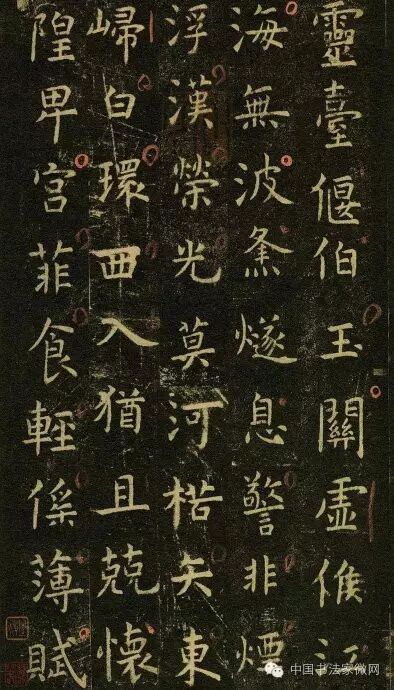 靈臺偃伯玉關虛候江
海無波㷭燧息警非煙
浮漢榮光莫河楛矢東
歸白環西入猶且兢懷
隍卑宮菲食輕徭薄賦
中国书法家微网